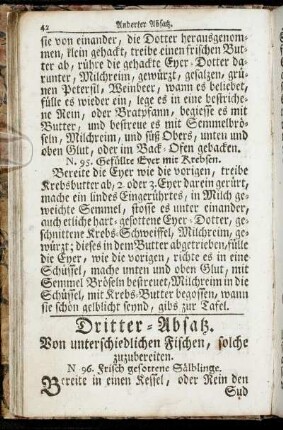 42 Anderter Absatz.
sie von einander, die Dotter herausgenom-
men, klein gehackt, treibe einen frischen But-
ter ab, rühre die gehackte Eyer-Dotter da-
runter, Milchreim, gewürzt, gesalzen, grü-
nen Petersil, Weinbeer, wann es beliebet,
fülle es wieder ein, lege es in eine bestriche-
ne Rein, oder Bratpfann, begiesse es mit
Butter, und bestreue es mit Semmelbrö-
seln, Milchreim, und süß Obers, unten und
oben Glut, oder im Back-Ofen gebacken.
N. 95. Gefüllte Eyer mit Krebsen.
Bereite die Eyer wie die vorigen, treibe
Krebsbutter ab, 2. oder 3. Eyer darein gerürt,
mache ein lindes Eingerührtes, in Milch ge-
weichte Semmel, stosse es unter einander,
auch etliche hart-gesottene Eyer-Dotter, ge-
schnittene Krebs-Schweiffel, Milchreim, ge-
würzt; dieses in dem Butter abgetrieben, fülle
die Eyer, wie die vorigen, richte es in eine
Schüssel, mache unten und oben Glut, mit
Semmel Bröseln bestreuet, Milchreim in die
Schüssel, mit Krebs-Butter begossen, wann
sie schön gelblicht seynd, gibs zur Tafel.
Dritter-Absatz.
Von unterschiedlichen Fischen, solche
zuzubereiten.
N 96. Frisch gesottene Sälblinge.
Bereite in einen Kessel, oder Rein den
Sud